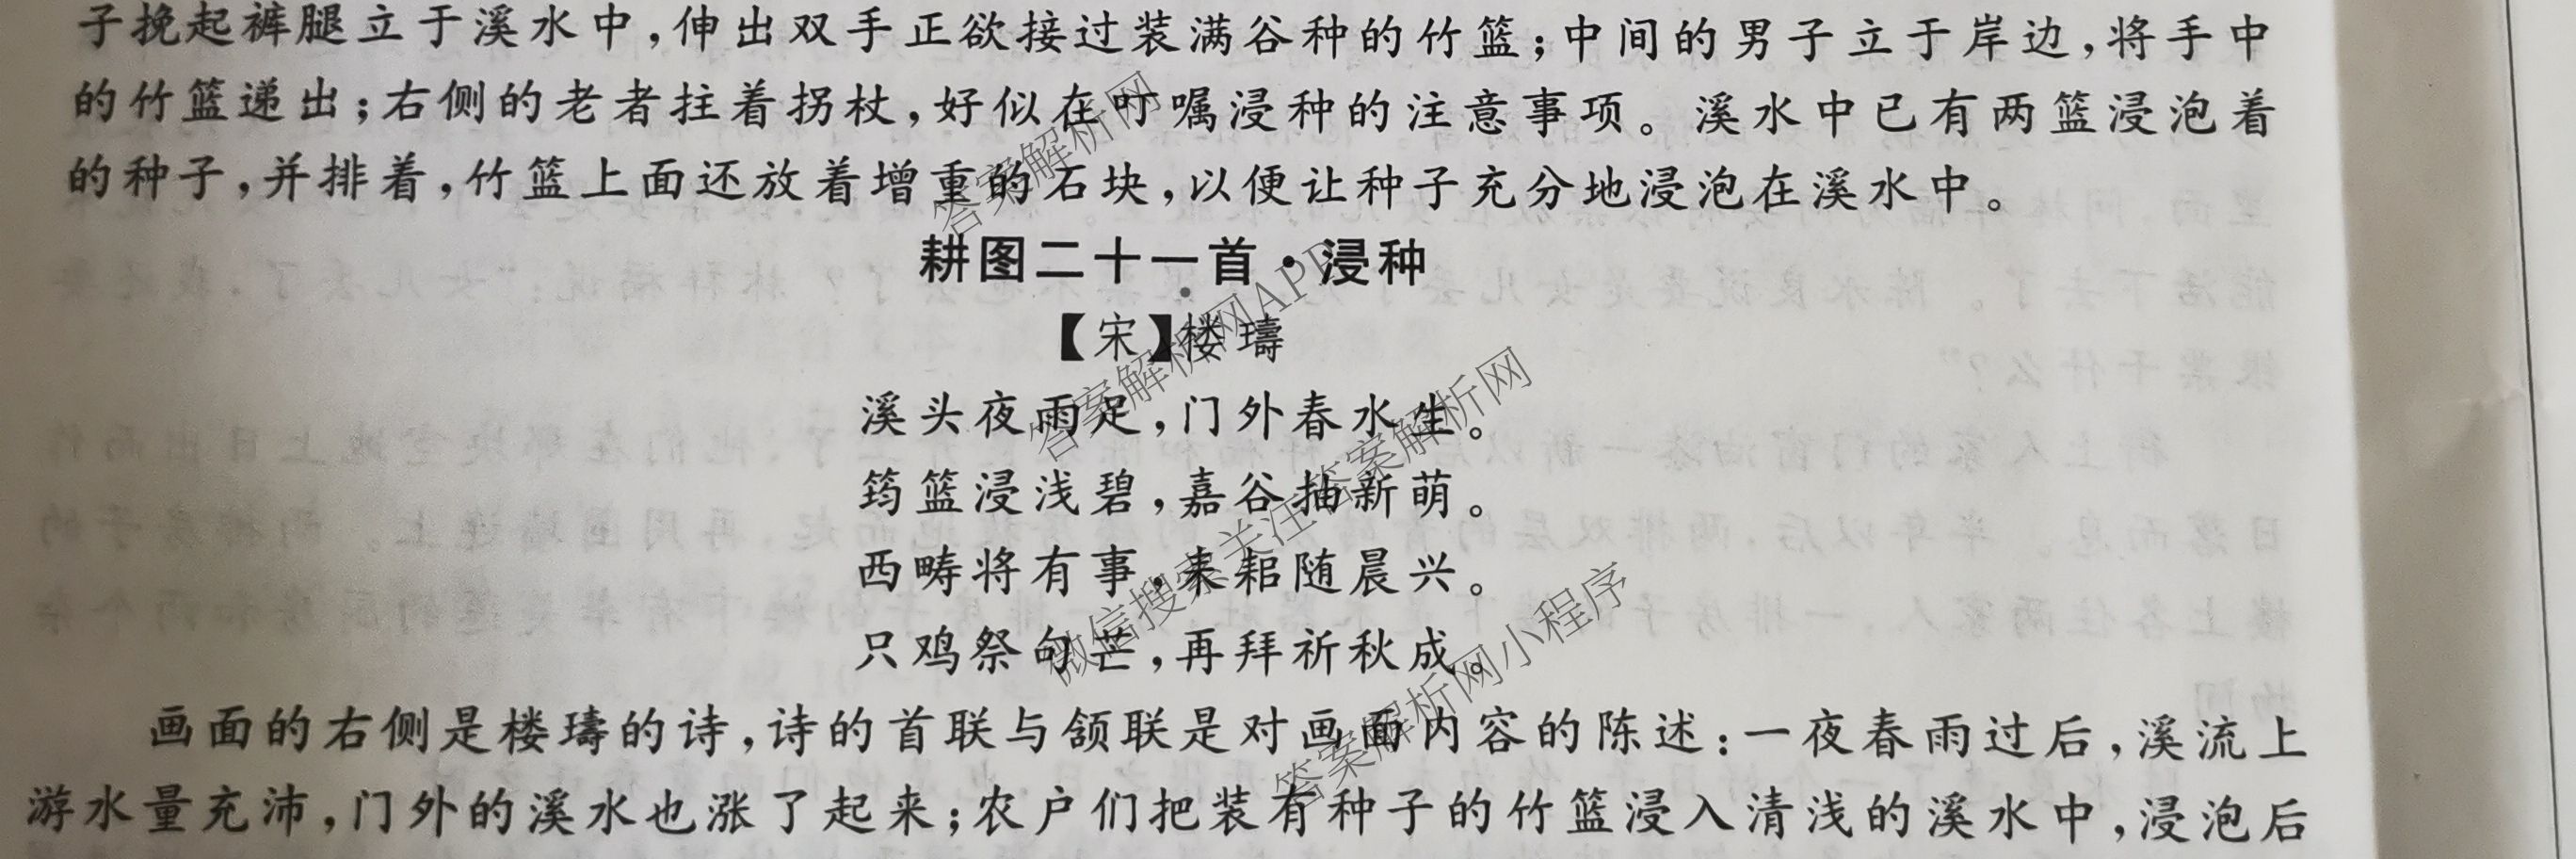 子挽起裤腿立于溪水中,伸出双手正欲接过装满谷种的竹篮;中间的男子立于岸边,将手中
的竹篮递出;右侧的老者拄着拐杖,好似在叮嘱浸种的注意事项。溪水中已有两篮浸泡着
的种子,并排着,竹篮上面还放着增重的石块,以便让种子充分地浸泡在溪水中。
耕图二十一首·浸种
【宋】楼璹
溪头夜雨足,门外春水生。
筠篮浸浅碧,嘉谷抽新萌。
西畴将有事,耒耜随晨兴。
只鸡祭句芒,再拜祈秋成。
画面的右侧是楼璹的诗,诗的首联与颔联是对画面内容的陈述:一夜春雨过后,溪流上
游水量充沛,门外的溪水也涨了起来;农户们把装有种子的竹篮浸入清浅的溪水中,浸泡后
答案解析网
答案解析网APP
微信搜索关注答案解析网
答案解析网小程序